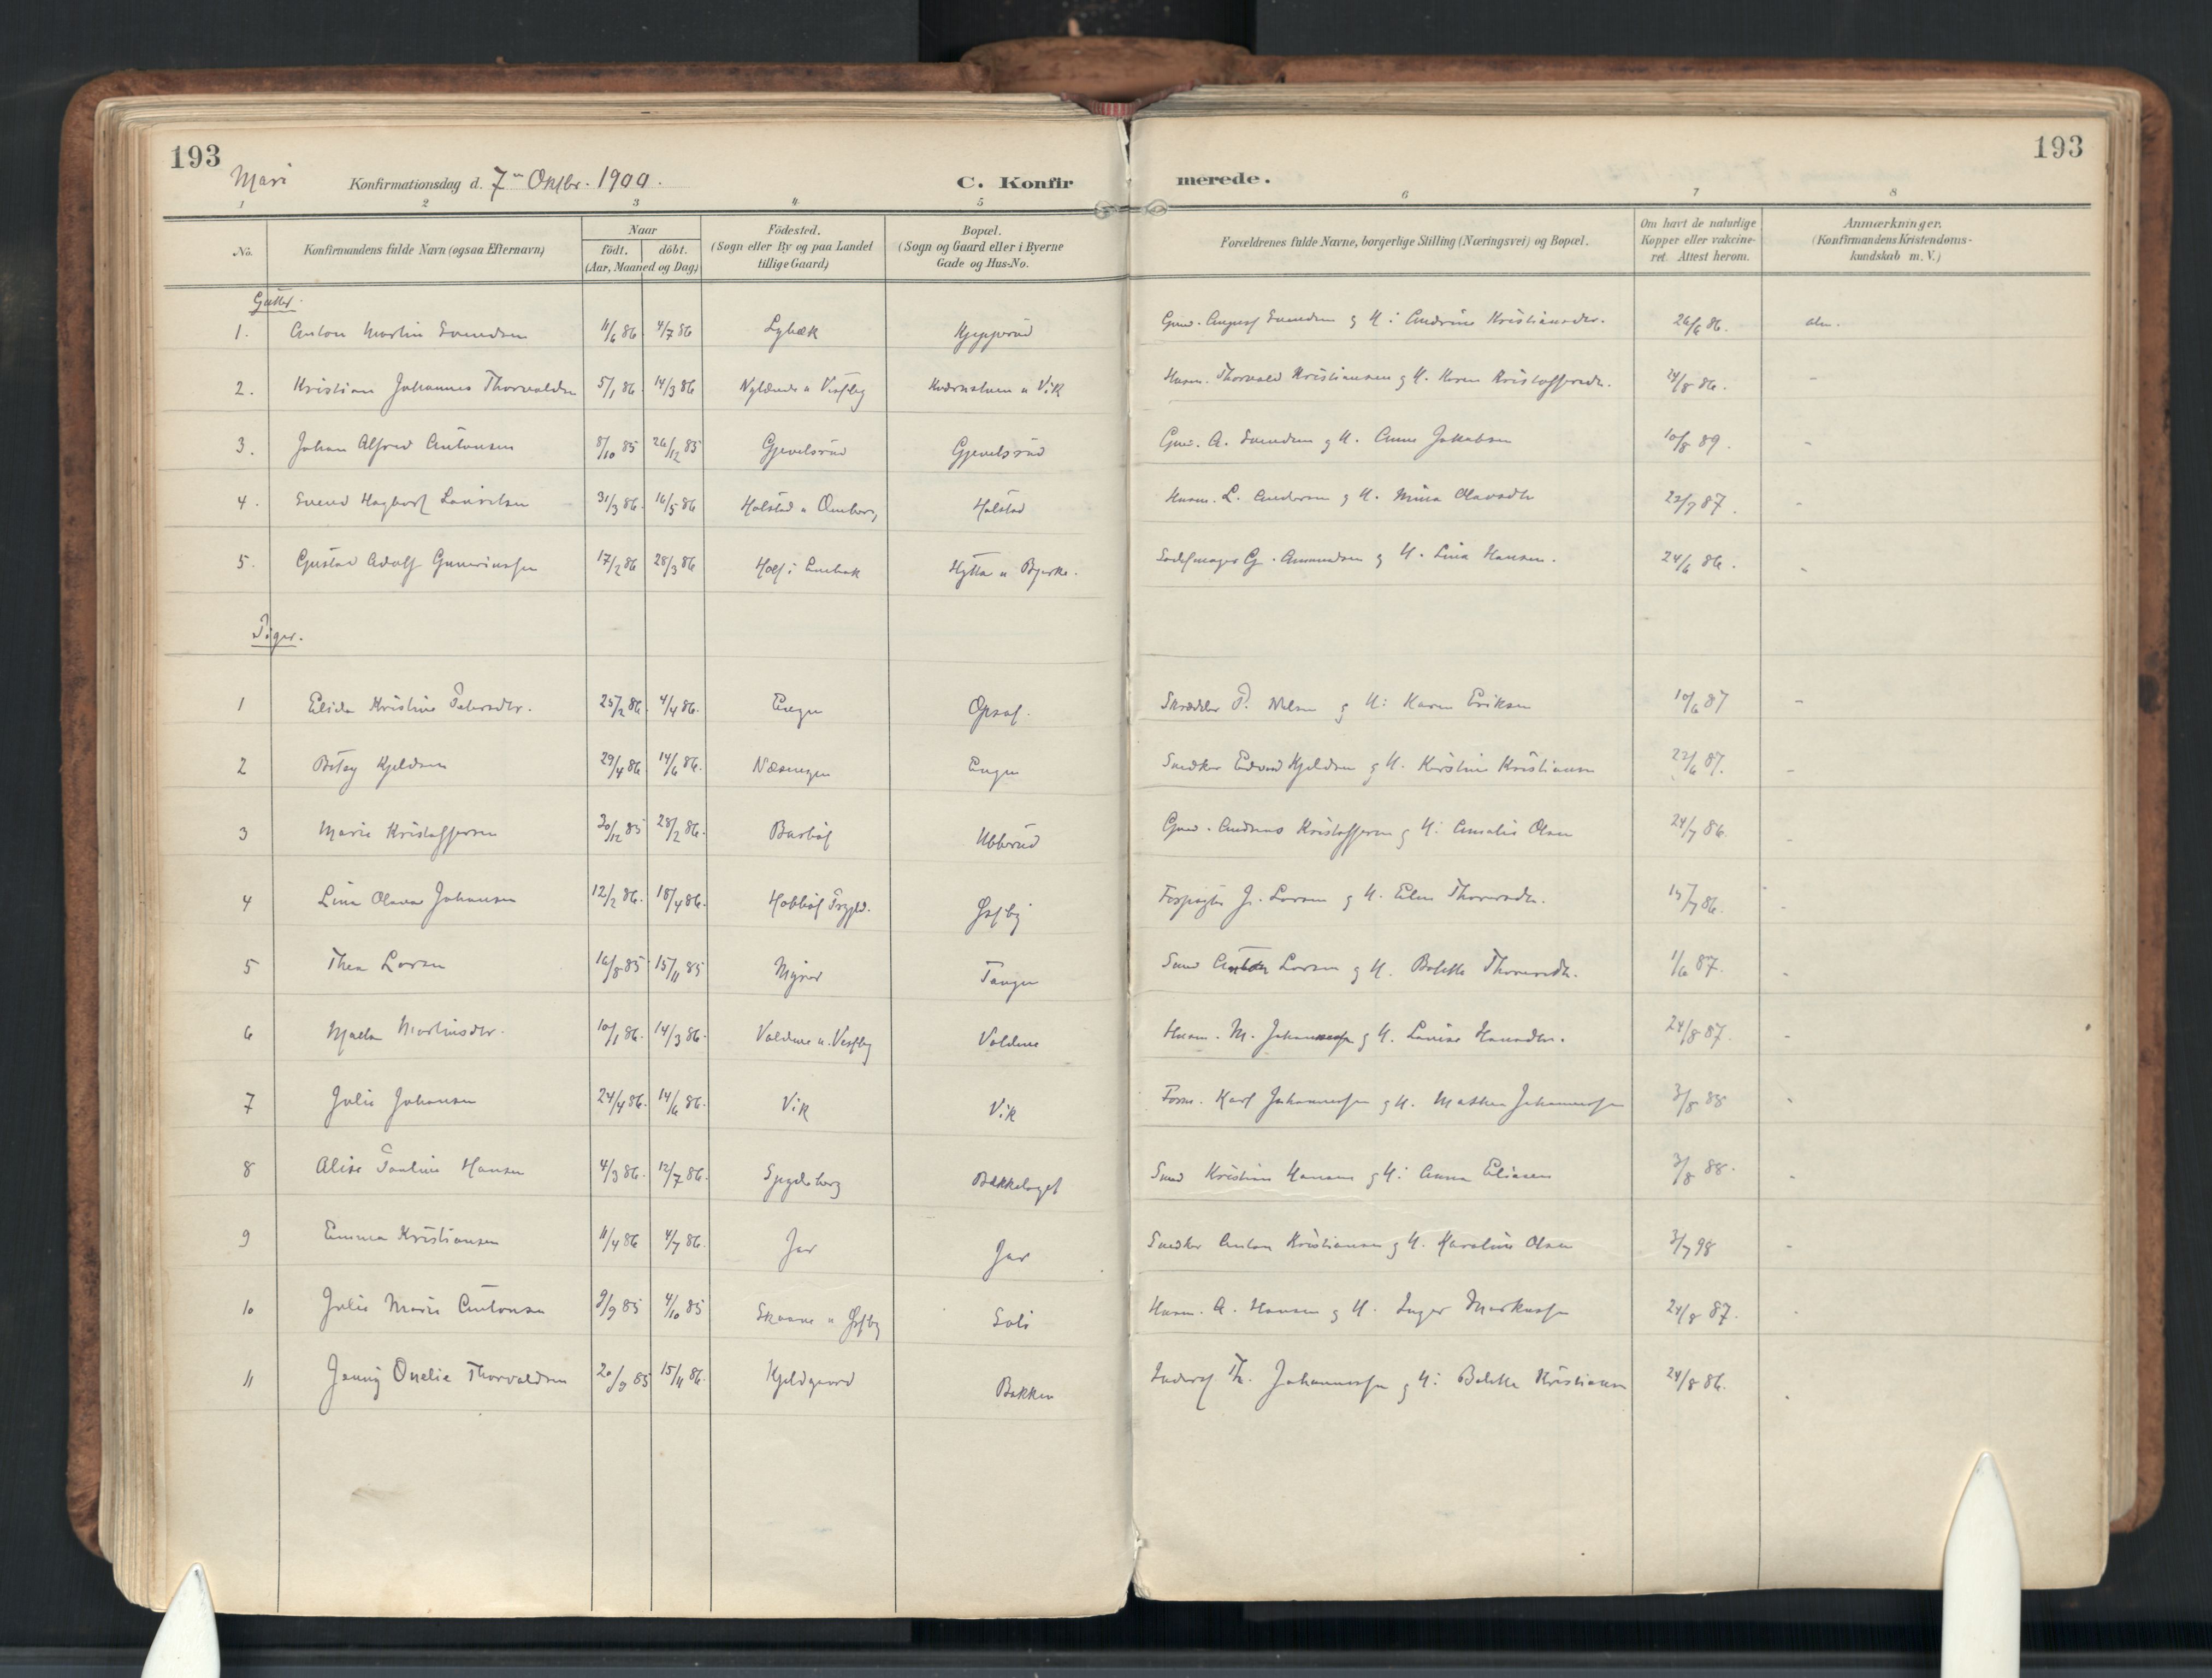 193
193
Mari Konfirmationsdag d. 7de Oktbr. 1900.
C. Konfirmerede.
1 2 3 4 5 6 7 8
No. Konfirmandens fulde Navn (ogsaa Efternavn) Naar födt. döbt. (Aar, Maaned og Dag) Födested. (Sogn eller By og paa Landet tillige Gaard) Bopæl. (Sogn og Gaard eller i Byerne Gade og Hus-No. Forældrenes fulde Navne, borgerlige Stilling (Næringsvei) og Bopæl. Om havt de naturlige Kopper eller vakcineret. Attest herom. Anmærkninger. (Konfirmandens Kristendomskundskab m. V.)
Gutter.
1. Anton Martin Svendsen 11/6 86 4/7 86 Lybæk Kjepperud Gmd. August Svendsen og H: Andrine Kristiansdtr. 26/6 86. alm.
2. Kristian Johannes Thorvaldsn 5/1 86 14/3 86 Nylænde u Vestby u Vik Husm. Thorvald Kristiansen og H. Karen Kristoffersdtr. 24/8 86. -
3. Johan Alfred Antonsen 8/10 85 26/12 85 Gjevelsrud Gjevelsrud Gmd. A. Svendsen og H. Anne Jakobsen 10/8 89. -
4. Svend Hagbart Lauritsen 31/3 86. 16/5 86 Holstad u Holstad Husm. L. Andersen og H. Mina Olavsdtr 22/7 87. -
5. Gustav Adolf Guneriussen 17/2 86 28/3 86 Hytta u Bjerke. G. Amundsen og H. Lina Hansen. 24/6 86. -
Piger.
1 Elida Kristine Petersdtr. 25/2 86 4/4 86. Engen Opsal. Skrædder P. Nilsen og H: Karen Eriksen 10/6 87 -
2 Betsy Kjeldsen 29/4 86. 14/6 86. Næsengen Engen Snedker Edvard Kjeldsen og H. Kirstine Kristiansen 22/6 87. -
3 Marie Kristoffersen 30/12 85 28/2 86. Barbøl Ubberud Gmd. Andreas Kristoffersen og H: Amalie Olsen 24/7 86. -
4 Lina Olava Johansen 12/2 86. 18/4 86. Hobbøl Østby Forpagter J. Larsen og H. Elen Thoresdtr. 15/7 86. -
5 Thea Larsen 16/8 85 15/11 85 Myrer Tangen Smed Anton Larsen og H. Bolette Thoresdtr. 1/6 87. -
6 Martinsdtr. 10/1 86. 14/3 86. Voldene u. Vestby Voldene Husm. M. Johannessen og H. Lovise Hansdtr. 24/8 87. -
7 Julie Johansen 24/4 86. 14/6 86. Vik Vik Karl Johannessen og H. Mathea Johannessen 3/8 88 -
8 Alise Pauline Hansen 4/3 86. 12/7 86. Spydeberg Bakkelaget Smed Kristian Hansen og H: Anna Eliasen 3/8 88. -
9 Emma Kristiansen 11/4 86 4/7 86. Jar Jar Snedker Anton Kristiansen og H. Karoline Olsen 3/7 98 -
10 Julie Marie Antonsen 9/9 85 4/10 85 u Østby Soli Husm. A. Hansen og H. Inger Markussen 24/8 87. -
11 Jenny Onelie Thorvaldsen 20/9 85 15/11 86. Kjeldgaard Bakken Inderst Th. Johannessen og H: Bolette Kristiansen 24/8 86. -